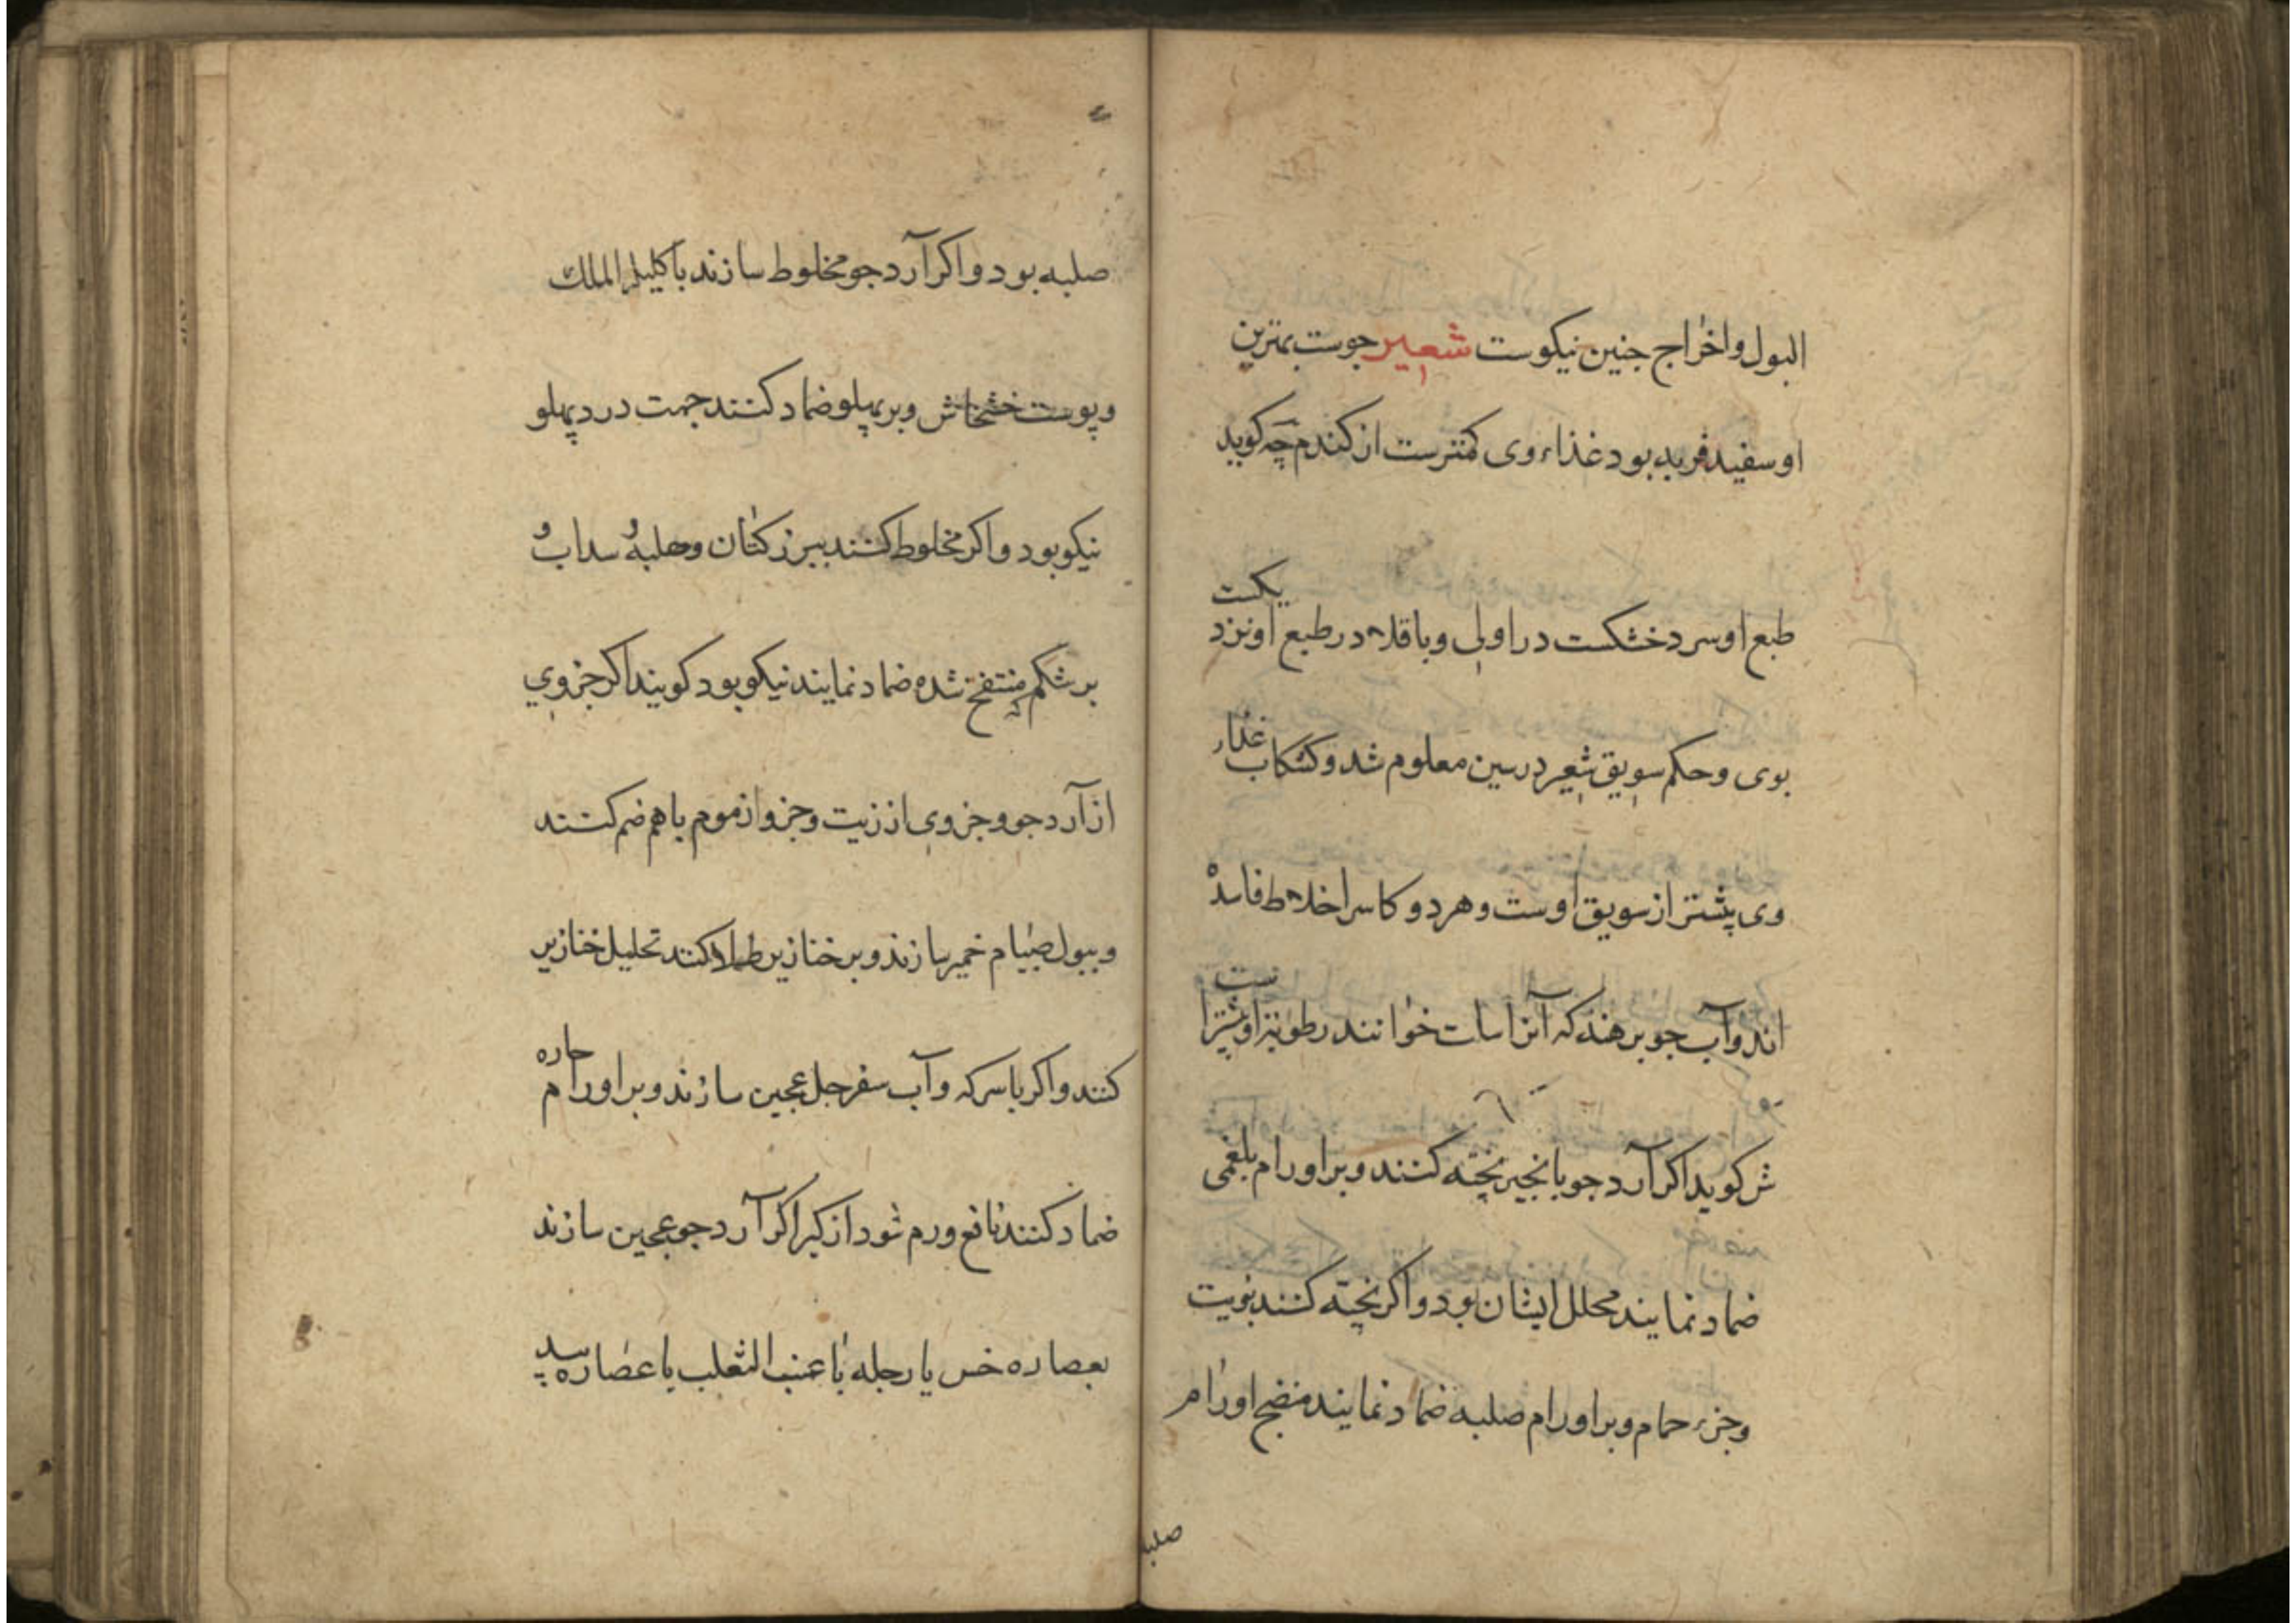 البول و اخراج جنین نیکوست شعیر جوست بهترین
او سفید فربه بود غذاء وی کمترست از کندم چه کوید
طبع او سرد خشکست در اولی و باقلا در طبع او نزد یکست
بوی و حکم سویق شعیر در سین معلوم شد و کشکاب غذاء
وی پیشتر از سویق اوست و هر دو کاسر اخلاط فاسده
اند و آب جو برهنه که آنرا سات خوانند رطوبتر او پیشتر است
ش کوید اکر آرد جو با نجیر پخته کنند و بر اورام بلغمی
ضماد نمایند محلل ایشان بود و اکر پخته کنند
و جزء حمام و بر اورام صلبه ضماد نمایند منضج اورام
صلبه
صلبه بود و اکر آرد جو مخلوط سازند باکلیل الملک
و پوست خشخاش و بر پهلو ضماد کنند جهت درد پهلو
نیکو بود و اکر مخلوط کنند ببزر کتان و حلبه و سداب و
بر شکم منتفخ شده ضماد نمایند نیکو بود کویند اکر جزوی
از آرد جو و جزوی از زیت و جزو از موم باهم ضم کنند
و ببول صبیام خمیر سازند و بر خنازیر کنند تحلیل خنازیر
کنند و اکر با سرکه و آب سفرجل عجین سازند و بر اورام حاره
ضماد کنند نافع ورم شود از کبر اکر آرد جو عجین سازند
بعصاره خس یا رجله یا عنب الثعلب یا عصاره